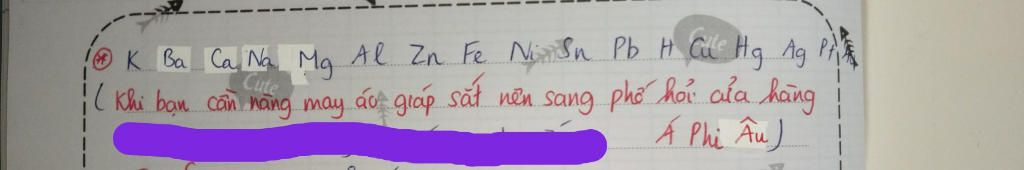 * K Ba Ca Na Mg Al Zn Fe Ni Sn Pb H Cu Hg Ag Pt
(Khi bạn cần nàng may áo giáp sắt nên sang phố hỏi cửa hàng
Á Phi Âu)
Cute
Cute